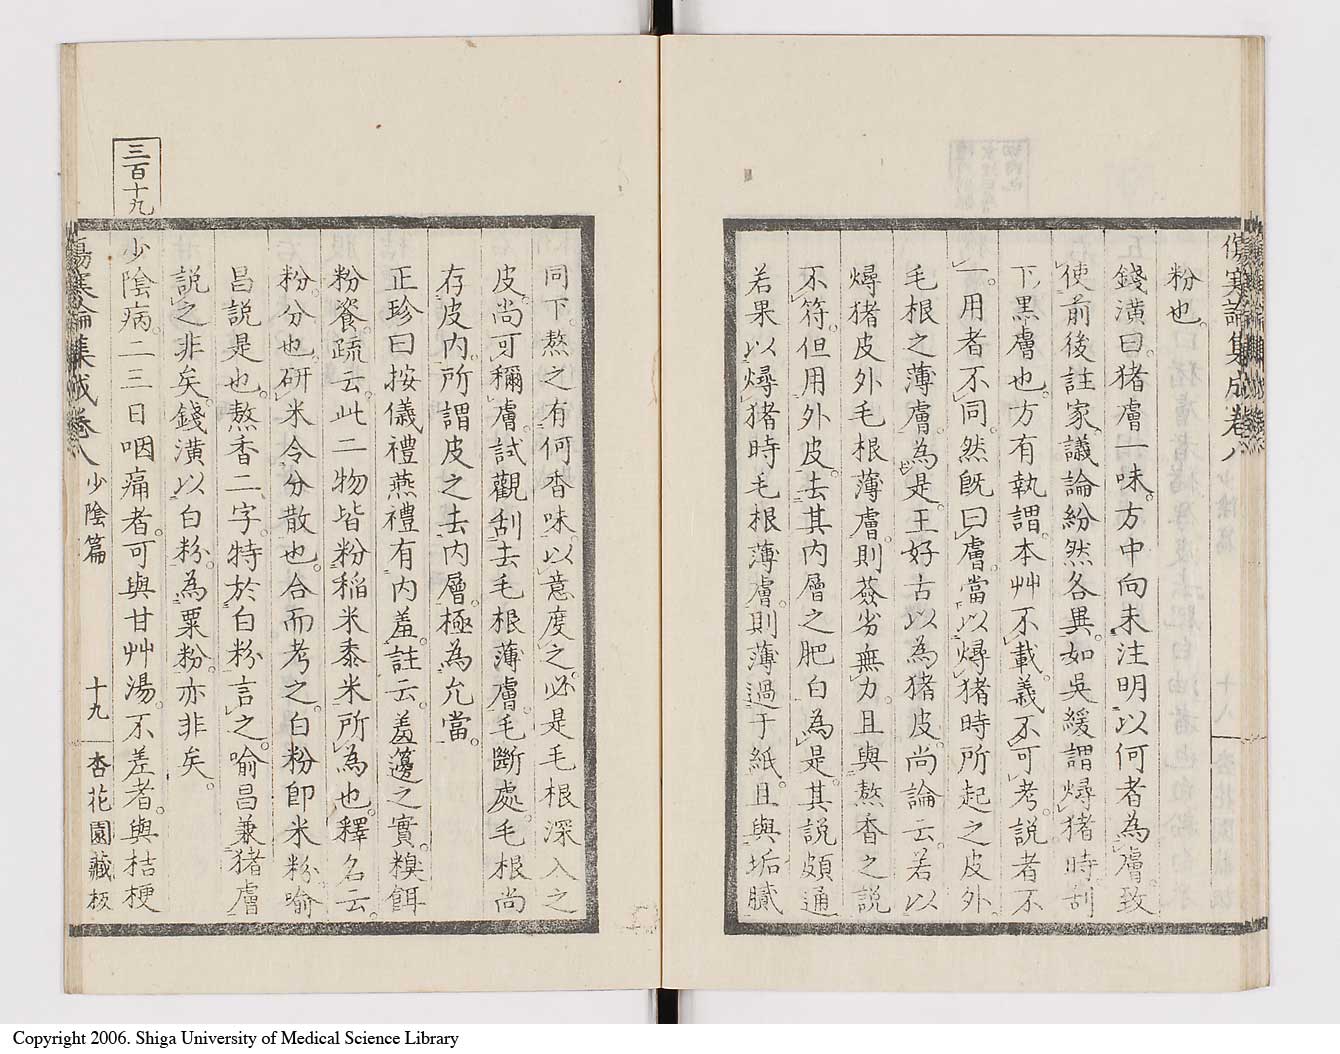 傷寒論集成卷八
粉也。
錢潢曰。猪膚一味。方中向未注明以何者為膚。致
使前後註家議論紛然各異。如吳緩謂燖猪時刮
下黑膚也。方有執謂。本艸不載。義不可考。說者不
一。用者不同。然既曰膚。當以燖猪時所起之皮外
毛根之薄膚。為是。王好古以為猪皮。尚論云。若以
燖猪皮外毛根薄膚。則𦵵劣無力。且與熬香之說
不符。但用外皮。去其內層之肥白為是。其說頗通
若果以燖猪時毛根薄膚。則薄過于紙。且與垢膩
同下。熬之有何香味。以意度之。必是毛根深入之
皮。尚可稱膚。試觀刮去毛根薄膚。毛斷處。毛根尚
存皮內。所謂皮之去內層。極為允當。
正珍曰按儀禮燕禮有內羞。註云。羞籩之實。糗餌
粉餈。疏云。此二物皆粉稻米黍米所為也。釋名云。
粉。分也。研米令分散也。合而考之。白粉即米粉。喻
昌說是也。熬香二字。特於白粉言之。喻昌兼猪膚
說之非矣。錢潢以白粉為粟粉。亦非矣。
三百十九
少陰病。二三日咽痛者。可與甘艸湯。不差者。與桔梗
傷寒論集成卷八 少陰篇 十九 杏花園藏板
Copyright 2006. Shiga University of Medical Science Library